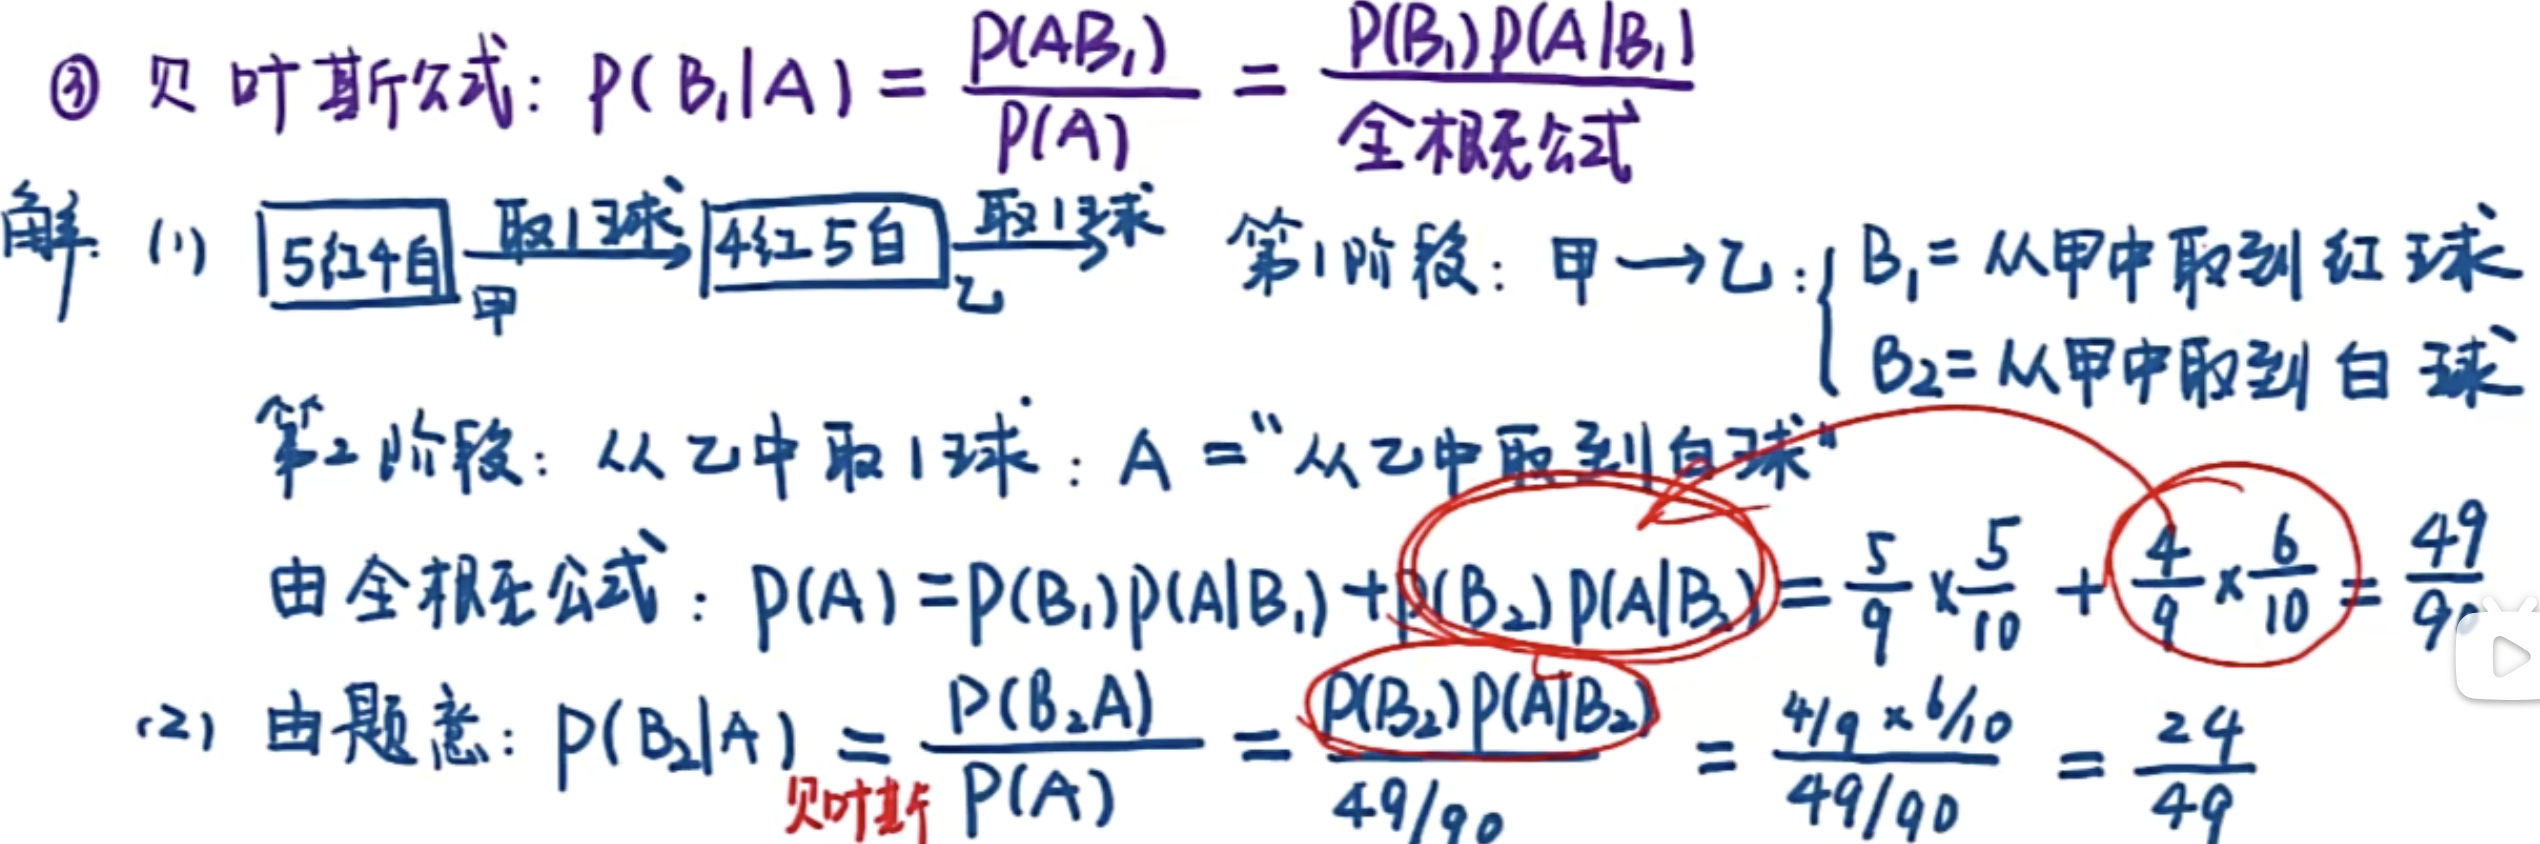 ③ 贝叶斯公式: P(B₁|A) = P(AB₁)/P(A) = P(B₁)P(A|B₁)/全概公式
解: (1) 5红4白 取1球 甲 → 4红5白 取1球 乙 → 第1阶段: 甲→乙: { B₁ = 从甲中取到红球
B₂ = 从甲中取到白球
第2阶段: 从乙中取1球: A = “从乙中取到白球”
由全概公式: P(A) = P(B₁)P(A|B₁) + P(B₂)P(A|B₂) = 5/9 × 5/10 + 4/9 × 6/10 = 49/90
(2) 由题意: P(B₂|A) = P(B₂A)/P(A) = P(B₂)P(A|B₂)/(49/90) = (4/9 × 6/10)/(49/90) = 24/49
贝叶斯